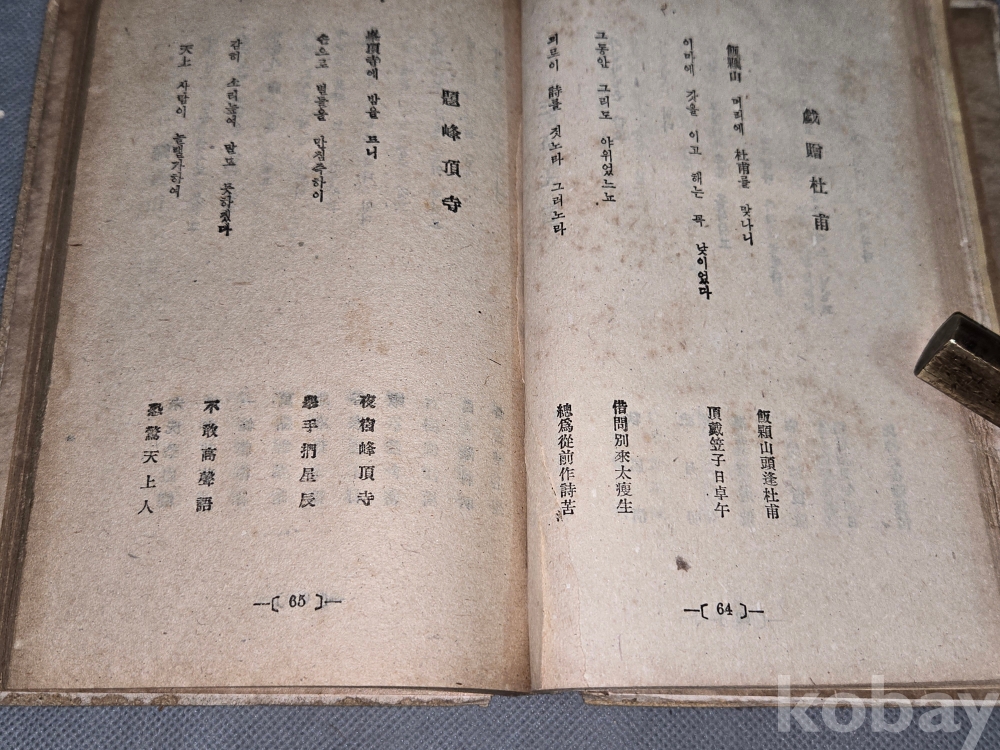 戱贈杜甫
飯顆山 머리에 杜甫를 맞나니
이마에 갓을 이고 해는 뚝 낮이었다
그동안 그리도 야위었느뇨
뫼르이 詩를 짓노라 그러노라
飯顆山頭逢杜甫
頂戴笠子日卓午
借問別來太瘦生
總爲從前作詩苦
—〔 64 〕—
題峰頂寺
峯頂寺에 밤을 드니
손으로 별들을 만질즉하이
감히 소리높여 말도 못하겠다
天上 사람이 놀랠가하여
夜宿峰頂寺
擧手捫星辰
不敢高聲語
恐驚天上人
—〔 65 〕—
kobay